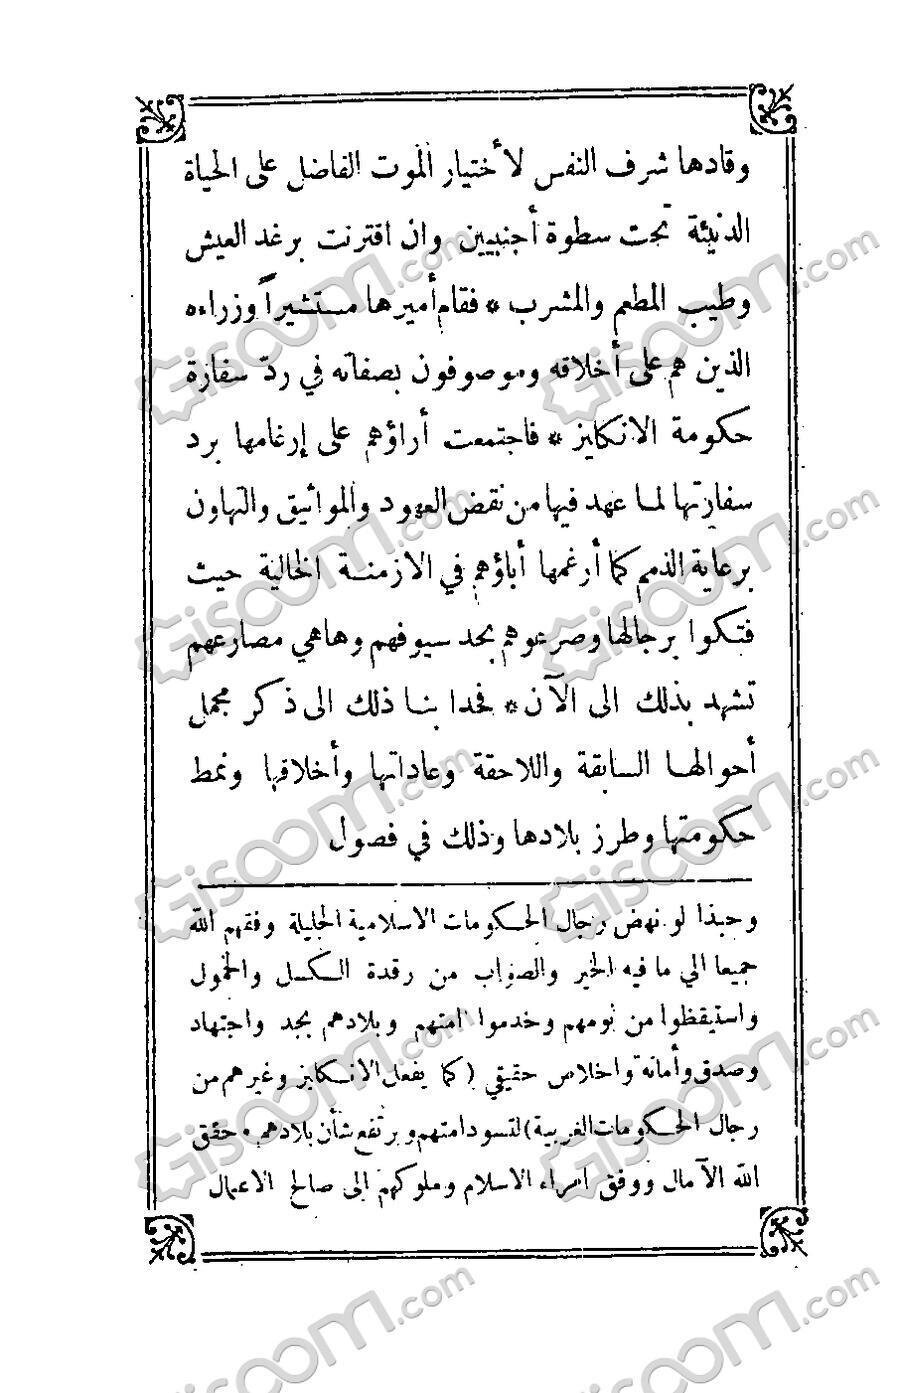 وقادها شرف النفس لأختيار الموت الفاضل على الحياة
الدنيئة تحت سطوة أجنبيين وان اقترنت برغد العيش
وطيب المطعم والمشرب * فقام أميرها مستشيراً وزراءه
الذين هم على أخلاقه وموصوفون بصفاته في ردّ سفارة
حكومة الانكليز * فاجتمعت أراؤهم على إرغامها برد
سفارتها لما عهد فيها من نقض العهود والمواثيق والتهاون
برعاية الذمم كما أرغمها أباؤهم في الازمنة الخالية حيث
فتكوا برجالها وصرعوهم بحد سيوفهم وهاهي مصارعهم
تشهد بذلك الى الآن * فحدا بنا ذلك الى ذكر مجمل
أحوالها السابقة واللاحقة وعاداتها وأخلاقها ونمط
حكومتها وطرز بلادها وذلك في فصول
وحبذا لو نهض رجال الحكومات الاسلامية الجليلة وفقهم الله
جميعا الي ما فيه الخير والصواب من رقدة الكسل والخمول
واستيقظوا من نومهم وخدموا امتهم وبلادهم بجد واجتهاد
وصدق وأمانة واخلاص حقيقي (كما يفعل الانكليز وغيرهم من
رجال الحكومات الغربية) لتسود امتهم ويرتفع شأن بلادهم * حقق
الله الآمال ووفق امراء الاسلام وملوكهم الى صالح الاعمال
Giscoom.com
Giscoom.com
Giscoom.com
Giscoom.com
Giscoom.com
Giscoom.com
Giscoom.com
Giscoom.com
Giscoom.com
Giscoom.com